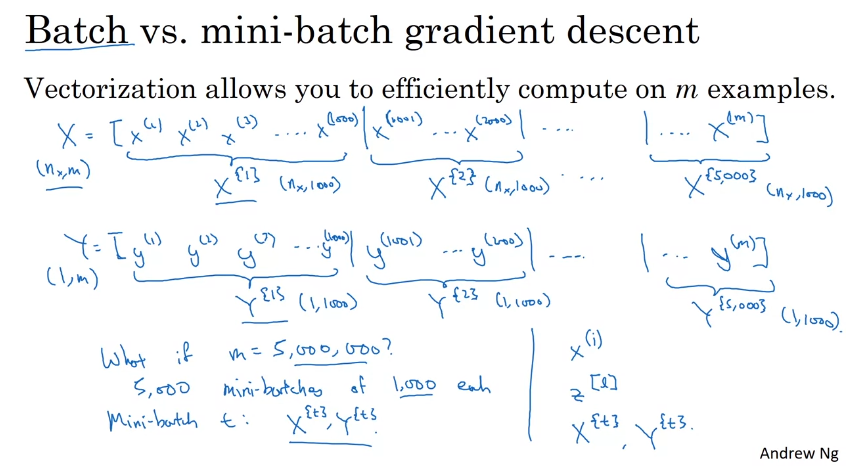 Batch vs. mini-batch gradient descent
Vectorization allows you to efficiently compute on m examples.
X = [x^(1) x^(2) x^(3) .... x^(1000) | x^(1001) ... x^(2000) | .... | .... x^(m)]
(n_x, m) X^{1} (n_x, 1000) X^{2} (n_x, 1000) .... X^{5,000} (n_x, 1000)
Y = [y^(1) y^(2) y^(3) ... y^(1000) | y^(1001) ... y^(2000) | .... | ... y^(m)]
(1, m) Y^{1} (1, 1000) Y^{2} (1, 1000) Y^{5,000} (1, 1000)
What if m = 5,000,000?
5,000 mini-batches of 1,000 each
Mini-batch t: X^{t}, Y^{t}.
x^(i)
z^[l]
X^{t}, Y^{t}.
Andrew Ng